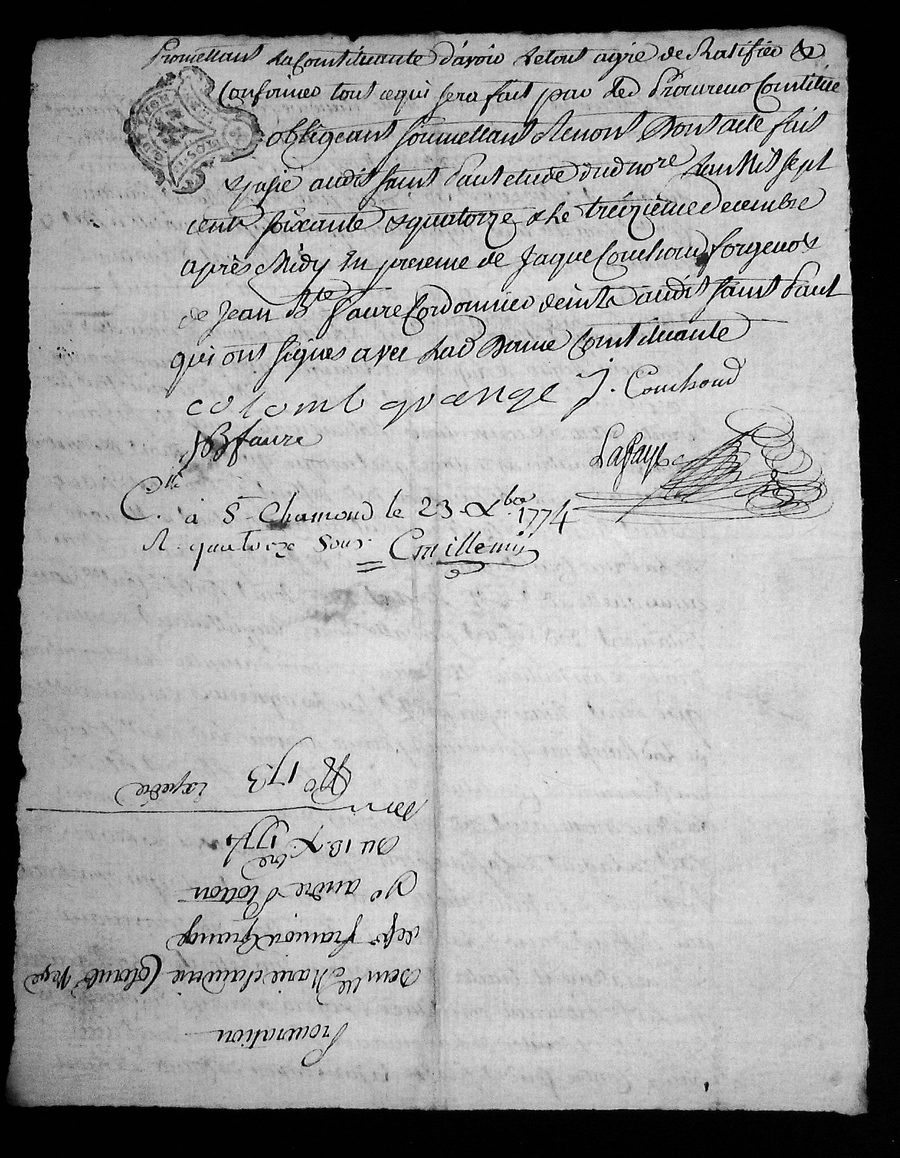 Promettant La Constituante d'avoir Le tout agrée de Ratifier &
Confirmer tout ce qui sera fait par led Procureur Constitué
obligeant soumettant Renont Dont acte fait
& passé audit Saint Paul etude dud nore Lan Mil sept
cents soixante & quatorze & Le treizieme Decembre
après Midy En presence de Jaque Couchoud forgeur &
de Jean Bte faure Cordonnier audit Saint Paul
qui ont signés avec Lad Dame Constituante
colomb grange J. Couchoud
JB faure
Lafay
C.lle à St Chamond le 23 Xbre 1774
R. quatorze sous
No 173 Expedié
Du 13 Xbre 1774
Sr andré
de Sr françois Grange
Marie Claudine Colomb
Procuration